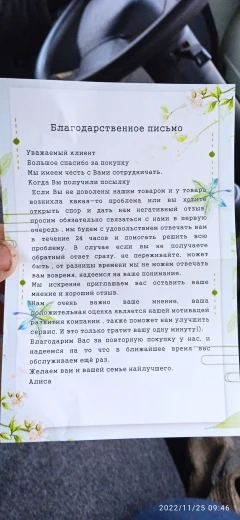 Благодарственное письмо
Уважаемый клиент
Большое спасибо за покупку
Мы имеем честь с Вами сотрудничать.
Когда Вы получили посылку
Если Вы не доволены нашим товаром и у товара
возникла какая-то проблема или вы хотите
открыть спор и дать нам негативный отзыв,
просим обязательно связаться с нами в первую
очередь , мы будем с удовольствием отвечать вам
в течение 24 часов и помогать решить всю
проблему. В случае если вы не получаете
обратный ответ сразу, не переживайте, может
быть , от разницы времени мы не можем отвечать
вам вовремя, надеемся на ваше понимание.
Мы искренне приглашаем вас оставить ваше
мнение и хороший отзыв.
Нам очень важно ваше мнение, ваша
положительная оценка является нашей мотивацией
развития компании , также поможет нам улучшить
сервис. И это только тратит вашу одну минуту)).
Благодарим Вас за повторную покупку у нас, и
надеемся на то что в ближайшее время вас
обслуживаем ещё раз.
Желаем вам и вашей семье наилучшего.
Алиса
2022/11/25 09:46